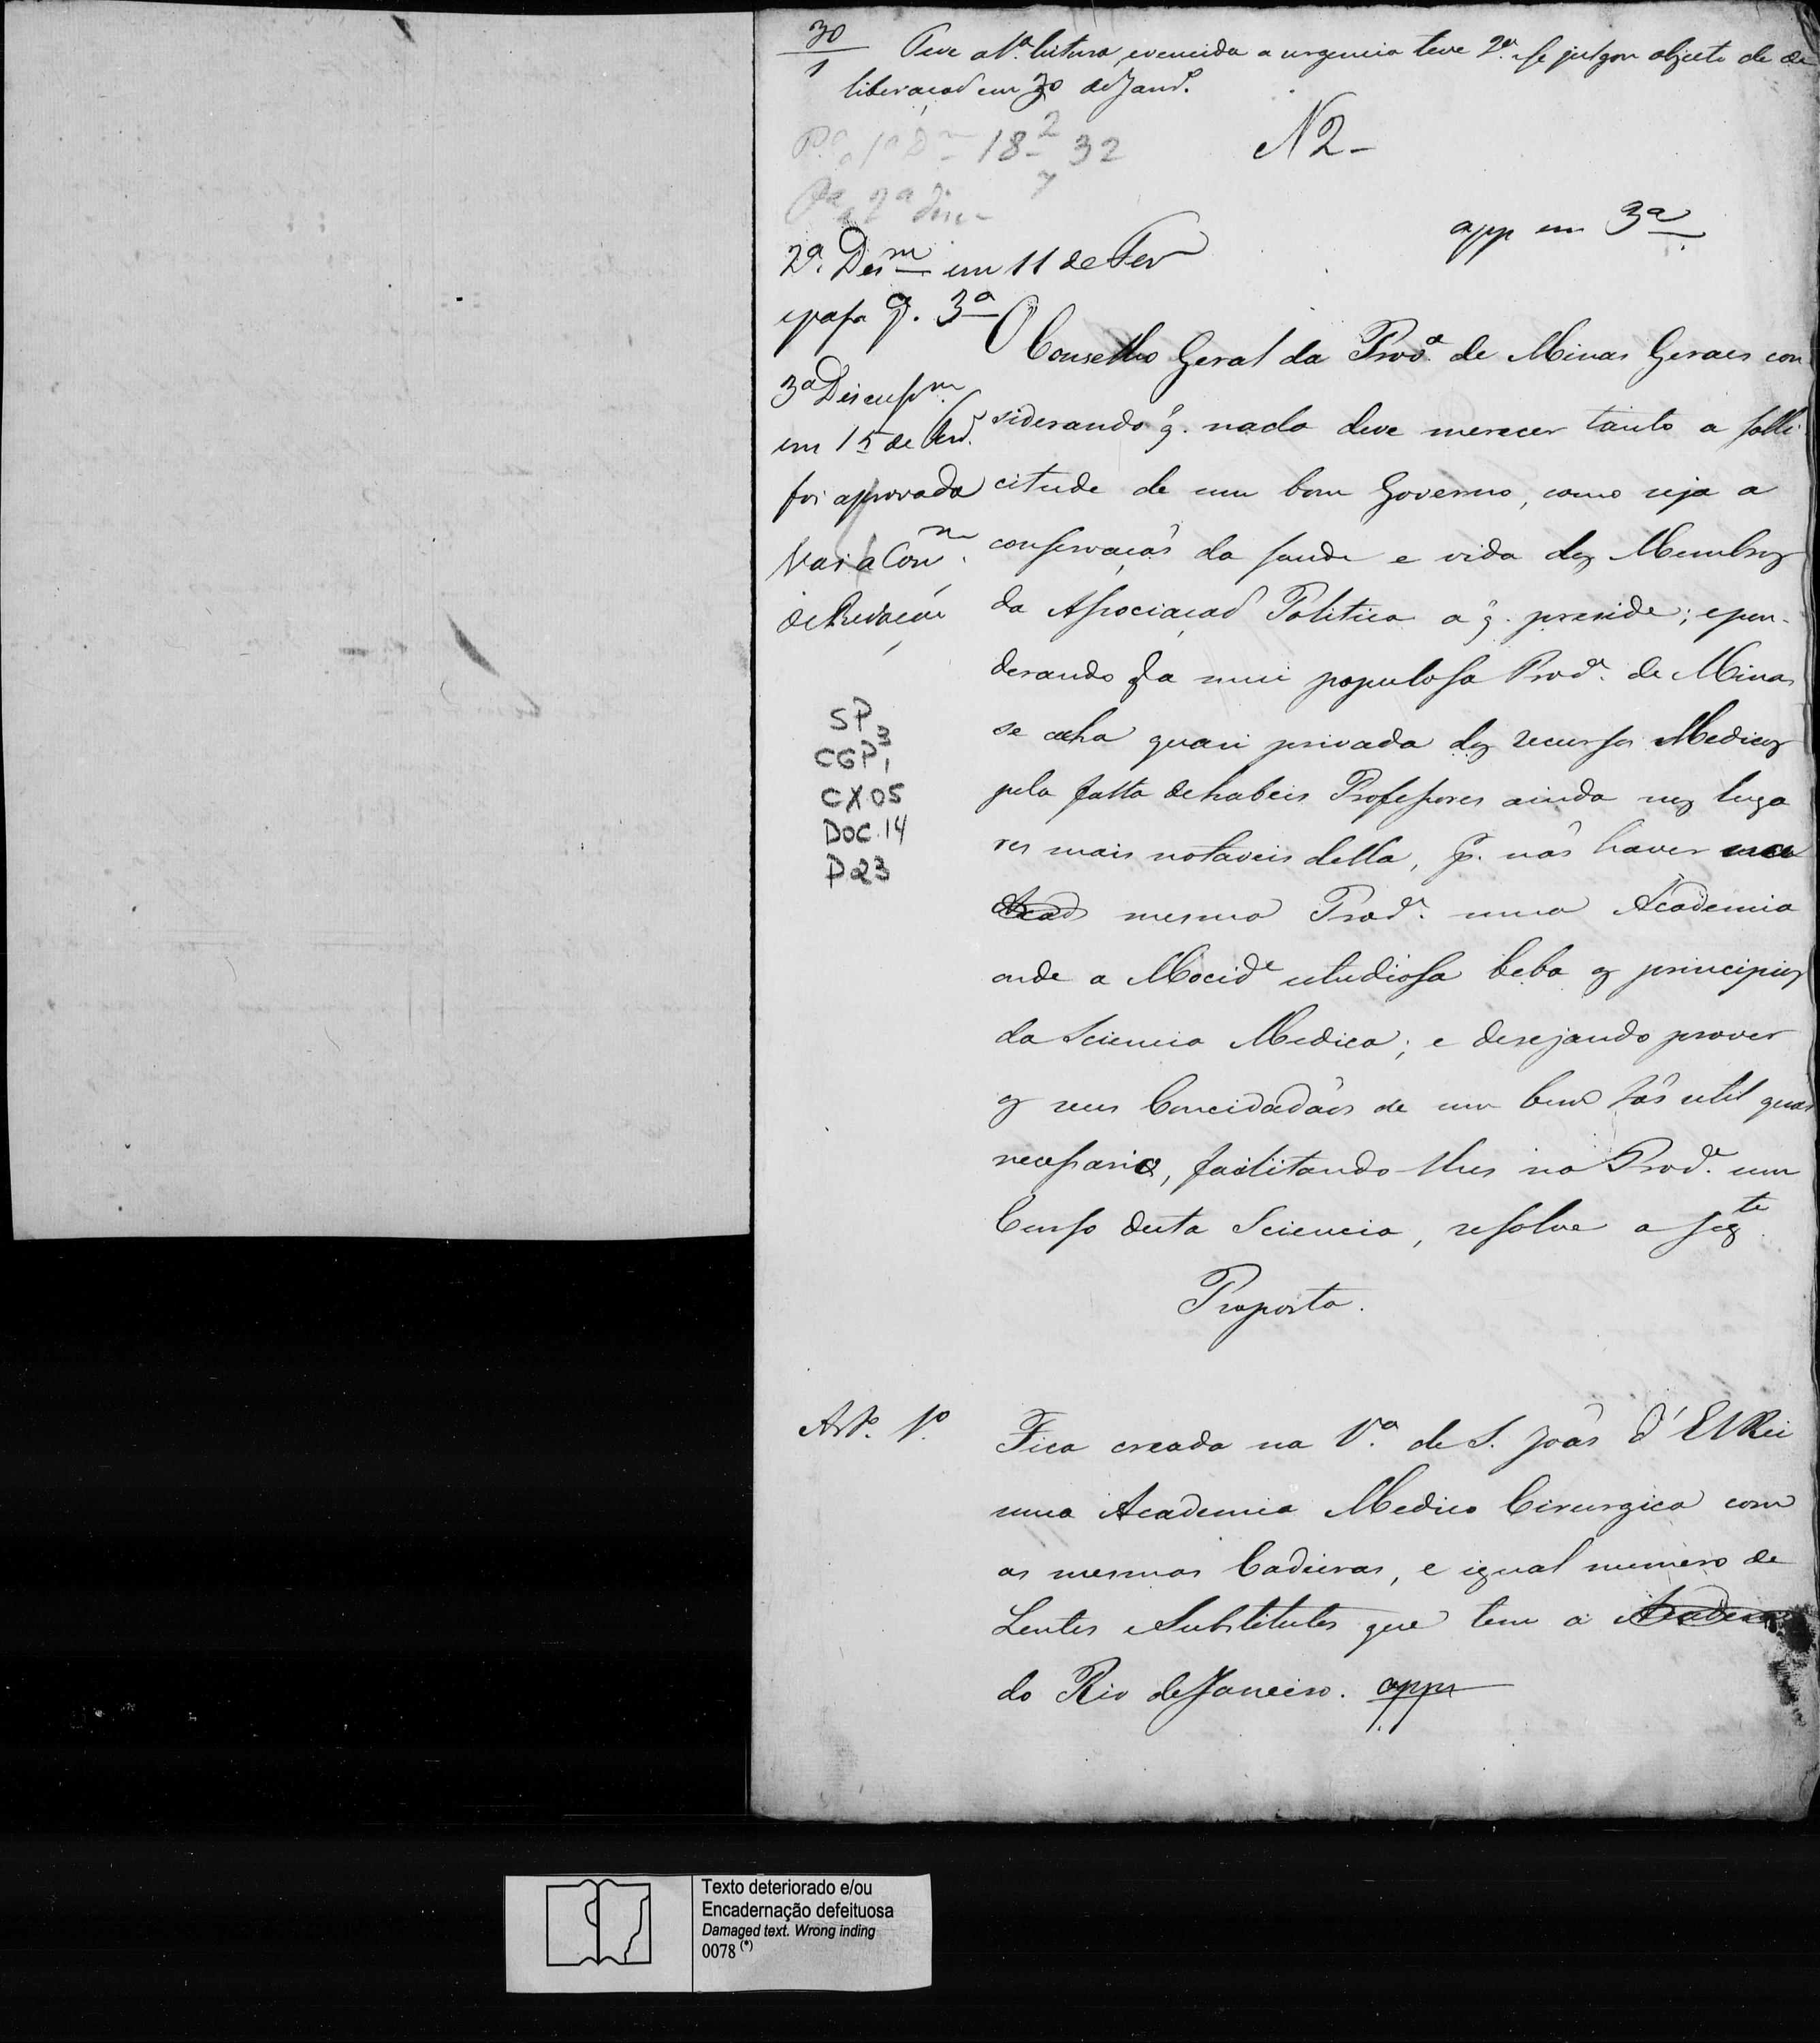 30
1
Teve a 1ª. leitura, evencida a urgencia teve 2ª. e se julgou objecto de de
liberaçaõ em 30 de Janrº.
Pª a 1ª Dm 18 2 32
Pª a 2ª disc
7
N 2 -
app em 3ª
2ª. Dism em 11 de Fev
epaſa p. 3ª
3ª Discuſm.
em 15 de Fevº.
foi approvada
Vai a Comm.
de Redacçaõ
SP 3
CGP 1
CX.05
DOC.14
P.23
O Conselho Geral da Provª. de Minas Geraes con
siderando q̃. nada deve merecer tanto a ſolli
citude de um bom Governo, como seja a
conſervaçaõ da ſaude e vida dos Membros
da Aſsociaçaõ Politica a q̃. preside; epon-
derando q̃ a mui populoſa Provª. de Minas
se acha quasi privada dos recurſos Medicos
pela falta dehabeis Profeſsores ainda nos luga
res mais notaveis della, p̃. naõ haver na
Acad mesma Provª. uma Academia
onde a Mocide estudioſa beba os principios
da Sciencia Medica; e desejando prover
os seus Concidadaõs de um bem taõ util quaõ
neceſsario, facilitando-lhes na Provª. um
Curſo desta Sciencia, reſolve a ſegte.
Proposta.
Artº. 1º.
Fica creada na Vª. de S. Joaõ d'ElRei
uma Academia Medico Cirurgica com
as mesmas Cadeiras, e igual numero de
Lentes e Substitutos que tem a Academia
do Rio deJaneiro. appr
Texto deteriorado e/ou
Encadernação defeituosa
Damaged text. Wrong inding
0078 (*)